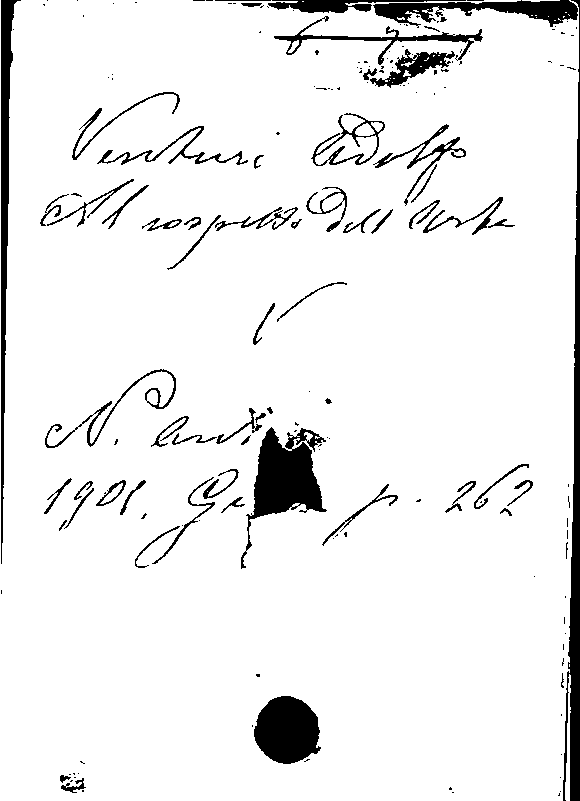 6. 7
Venturi Adolfo
Al cospetto dell' Urbe
V
N. Ant
1901. Ge p. 262